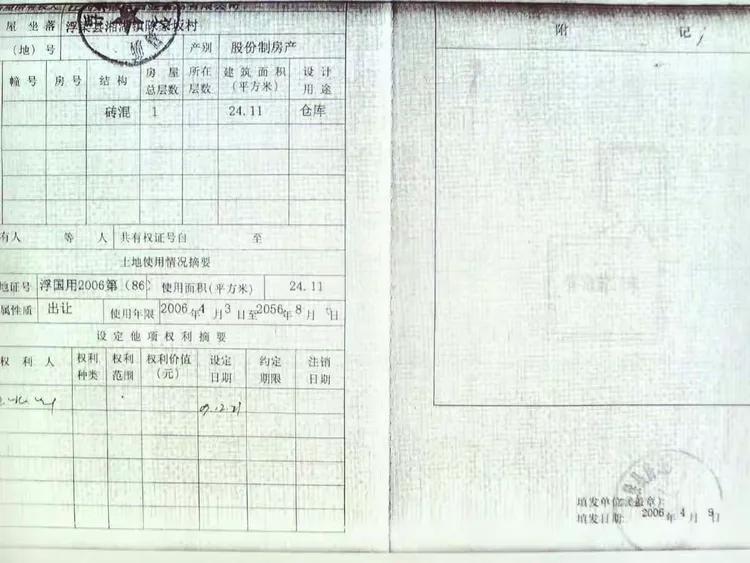 屋 坐 落 浮梁县湘湖镇陈家坂村
(地) 号 产别 股份制房产
幢号 房号 结构 房屋总层数 所在层数 建筑面积(平方米) 设计用途
砖混 1 24.11 仓库
有人 等 人 共有权证号自 至
土地使用情况摘要
地证号 浮国用2006第(86) 使用面积(平方米) 24.11
属性质 出让 使用年限 2006年4月3日至2056年8月 日
设定他项权利摘要
权利人 权利种类 权利范围 权利价值(元) 设定日期 约定期限 注销日期
附 记
填发单位(盖章):
填发日期: 2006年4月9日